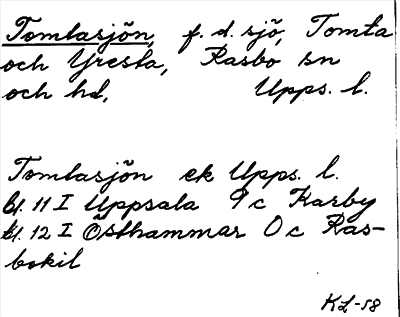 Tomtasjön, f. d. sjö, Tomta
och Yresta, Rasbo sn
och hd, Upps. l.
Tomtasjön ek Upps. l.
bl. 11 I Uppsala 9c Karby
bl. 12 I Östhammar 0c Ras-
bokil
KL-58